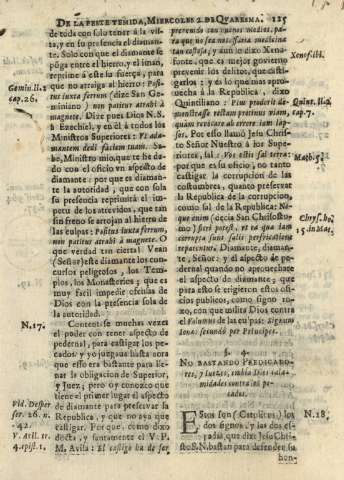 DE LA PESTE TEMIDA, MIERCOLES 2. DE QVARESMA. 125
de toda con solo tener à la vista, y en su presencia el diamante. Solo con que el diamante se
ponga entre el hierro, y el iman,
reprime à este su fuerça, para
que no arroja al hierro: Positus
iuxta ferrum (dize San Geminiano) non patitur atrahi à
magnete. Dize pues Dios N. S.
à Ezechiel, y en èl à todos los
Ministros Superiores: Vt adamantem dedi faciem tuam. Sabe, Ministro mio, que te he dado con el oficio vn aspecto de
diamante: por que es diamante
la autoridad, que con sola
su presencia reprimirà el impetu de los atrevidos, que aun
sin freno se arrojan al hierro de
las culpas: Positus iuxta ferrum,
non patitur atrahi à magnete. O
que verdad tan cierta! Vean
(Señor) este diamante los concursos peligrosos, los Templos, los Monasterios; que es
muy facil impedir ofensas de
Dios con la presencia sola de
la autoridad.
Contentese muchas vezes
el poder con tener aspecto de
pedernal, para castigar los pecados: y yo juzgaua hasta aora
que esso era bastante para llenar la obligacion de Superior,
y Juez; pero oy conozco que
tiene el primer lugar el aspecto
de diamante para preservar la
Republica, y que no aya que
castigar. Porque, como dixo
docta, y santamente el V. P.
M. Avila: El castigo ha de ser
Gemin. li. 2
cap. 26.
N. 17.
ser. 26. n.
42.
V. Avil. tr.
4. epist. 1.
Xenof. ibi.
Quint. li. 2
cap. 7.
Math. 5.
Chrys. ho.
15 in Mat.
N. 18.
fonte, que es mejor govierno
prevenir los delitos, que castigarlos; y es lo que mas aprovecha à la Republica, dixo
Quintiliano:
lapsos. Por esso llamò Jesu Christo Señor Nuestro à los Superiores, sal: Vos estis sal terræ:
por que es su oficio, no tanto
castigar la corrupcion de las
costumbres, quanto preservar
la Republica de la corrupcion,
como sal de la Republica: Neque enim (decia San Chrisostomo) fieri potest, vt ea quæ iam
corrupta sunt salis perfricatione
reparentur. Diamante, diamante, Señor: y el aspecto de pedernal quando no aprovechare
el aspecto de diamante; que
para esto se erigieron estos oficios publicos, como signo roxo, con que aulita Dios contra
el Vulcano de las culpas: Signum
Iouæ: secundò per Principes.
§. 4.
NO BASTANDO PREDICADORES, y Iuezes, embia Dios calamidades contra los pecados.
ESTOS son (Catolicos) los
dos signos, y las dos espadas, que dize Jesu Christo S. N. bastan para defender su
hon-